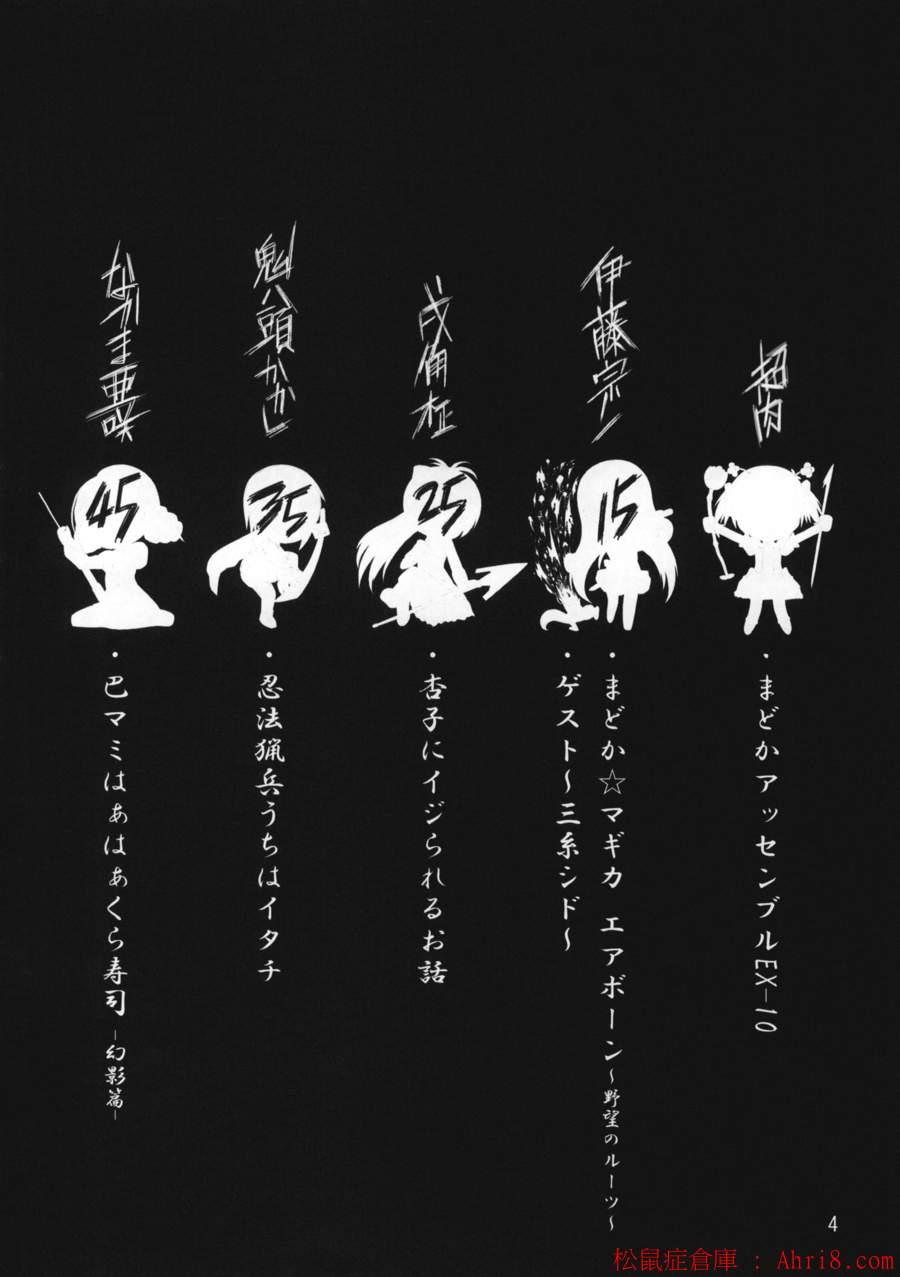 招肉
・まどかアッセンブルEX-10
伊藤宗一
15
・まどか☆マギカ エアボーン～野望のルーツ～
・ゲスト～三糸シド～
25
・杏子にイジられるお話
鬼八頭かかし
35
・忍法猟兵うちはイタチ
なかま亜咲
45
・巴マミはぁはぁくら寿司 -幻影篇-
4
松鼠症倉庫 : Ahri8.com